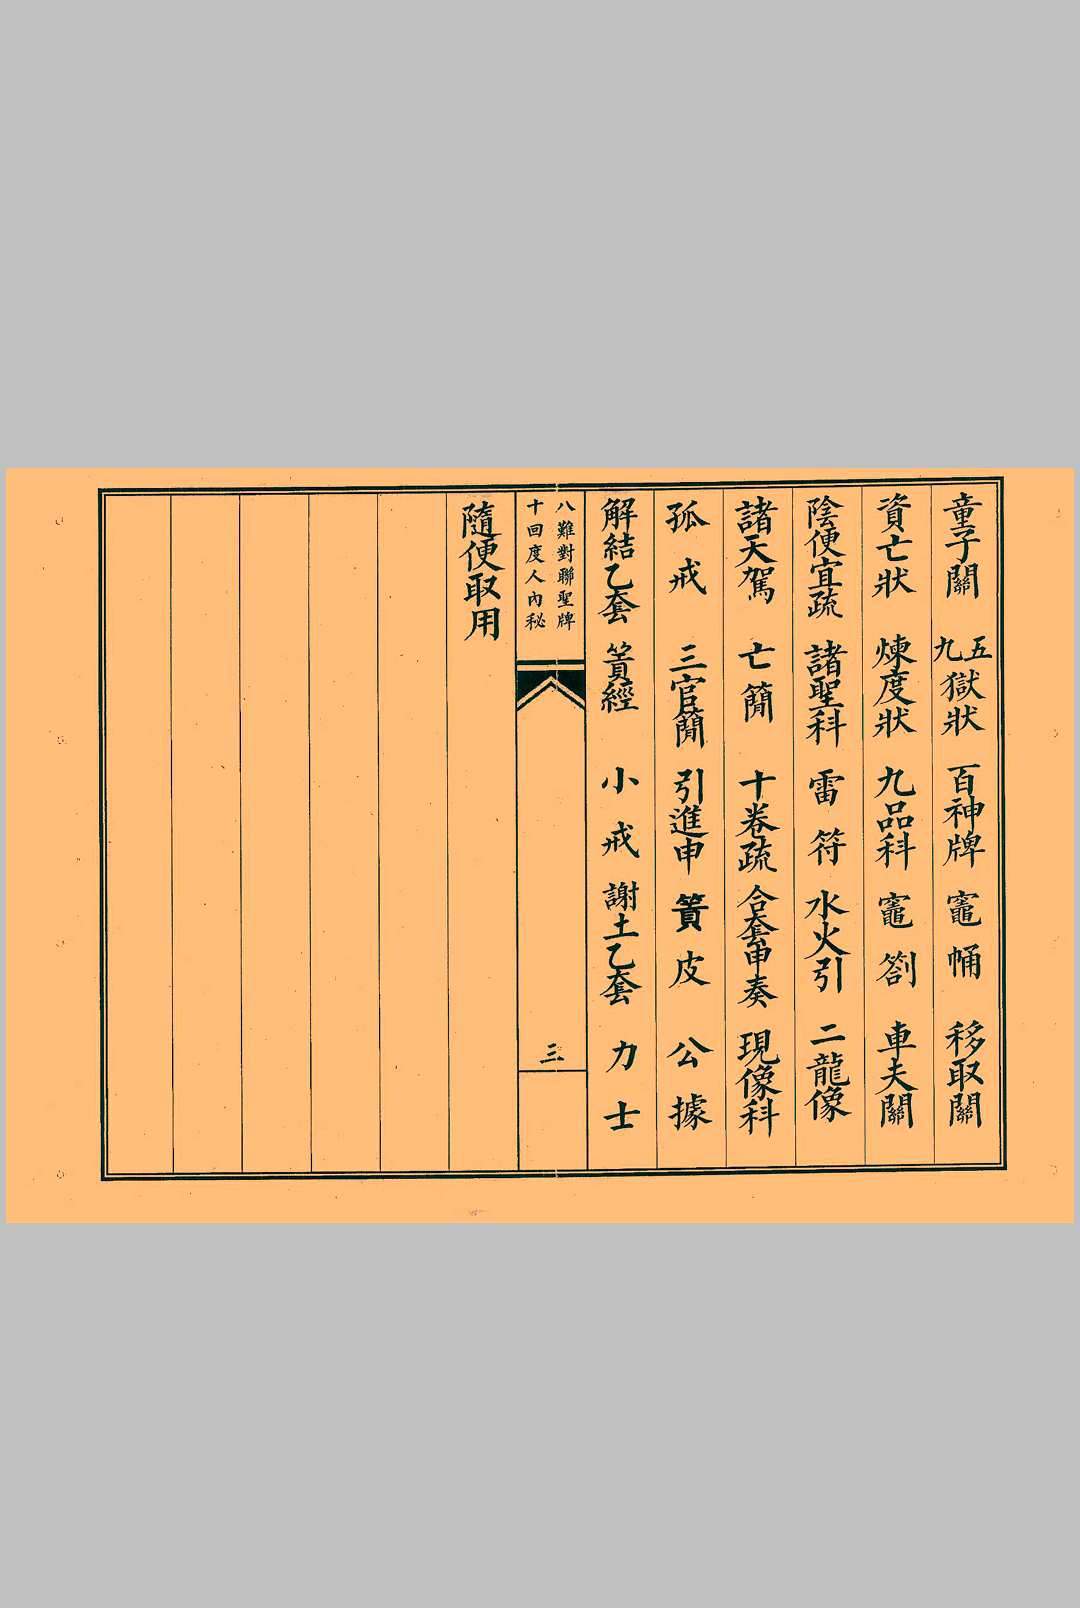 童子關 五九獄狀 百神牌 竈㡒 移取關
資亡狀 煉度狀 九品科 竈劄 車夫關
陰便宜疏 諸聖科 雷符 水火引 二龍像
諸天駕 亡簡 十卷疏 合套申奏 現像科
孤戒 三官簡 引進申 簣皮 公據
解結乙套 簣經 小戒 謝土乙套 力士
八難對聯聖牌
十回度人內秘
三
隨便取用